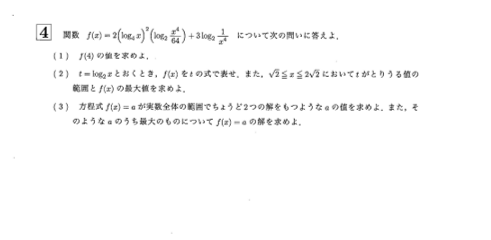 4 関数 f(x)=2(log₄ x)²(log₂ x⁴/64)+3log₂ 1/x⁴ について次の問いに答えよ.
(1) f(4) の値を求めよ.
(2) t=log₂ x とおくとき, f(x) を t の式で表せ. また, √2≦x≦2√2 において t がとりうる値の
範囲と f(x) の最大値を求めよ.
(3) 方程式 f(x)=a が実数全体の範囲でちょうど2つの解をもつような a の値を求めよ. また, そ
のような a のうち最大のものについて f(x)=a の解を求めよ.